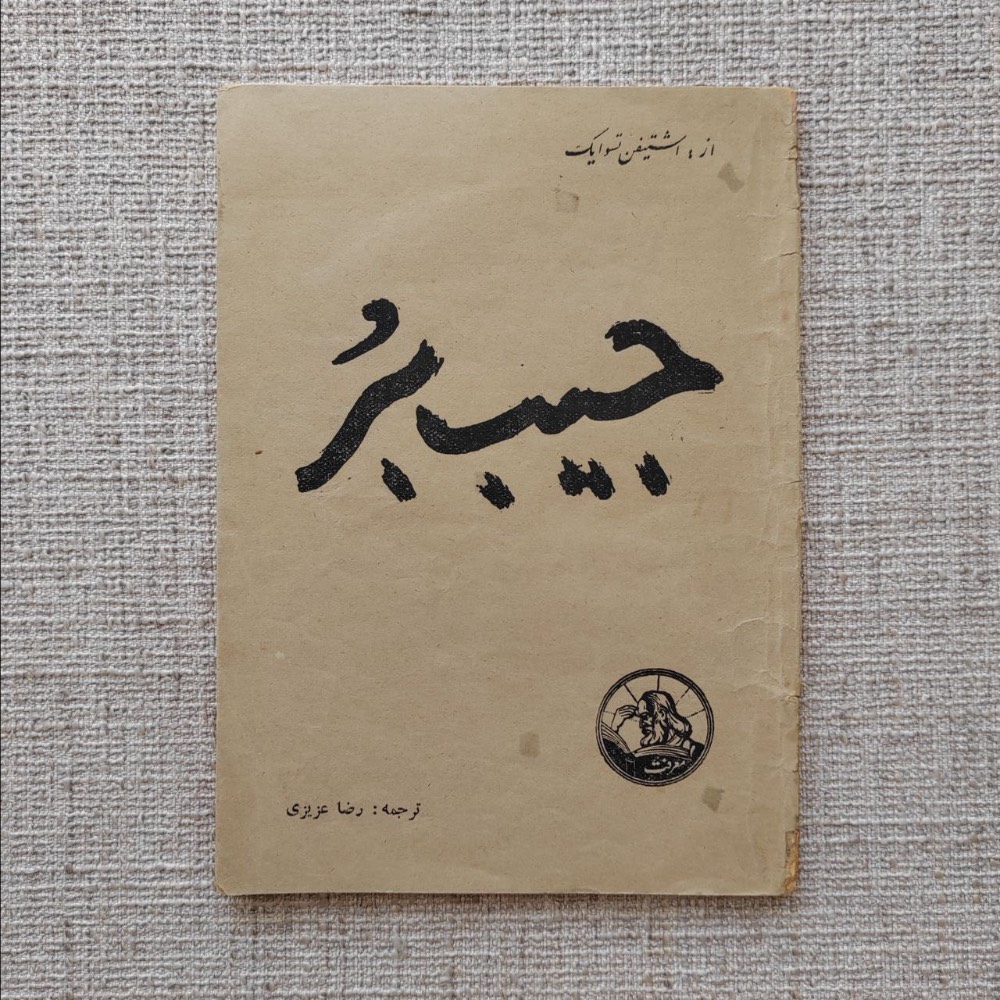 از : اشتیفن تسوایک
جیب بُر
معرفت
ترجمه : رضا عزیزی